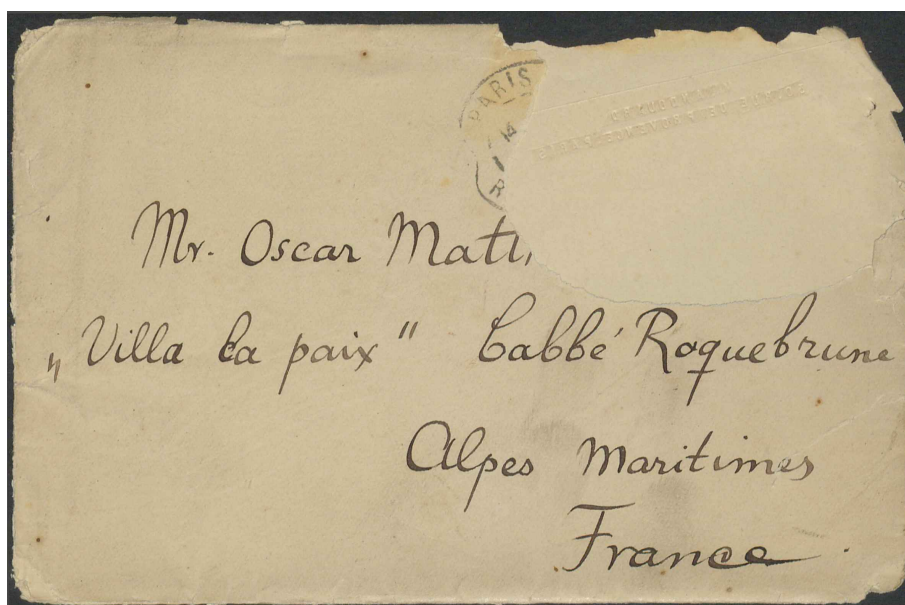 PARIS
14
R
Mr. Oscar
„Villa la paix" Cabbé Roquebrune
Alpes Maritimes
France